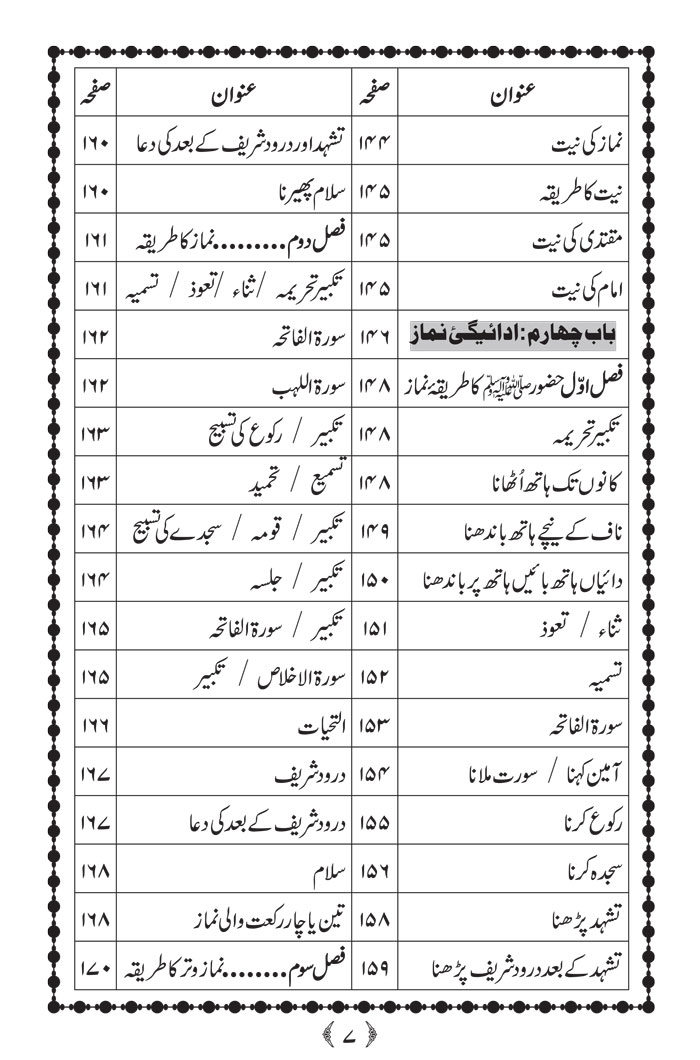 عنوان صفحہ عنوان صفحہ
نماز کی نیت ۱۴۴ تشہد اور درود شریف کے بعد کی دعا ۱۶۰
نیت کا طریقہ ۱۴۵ سلام پھیرنا ۱۶۰
مقتدی کی نیت ۱۴۵ فصل دوم.........نماز کا طریقہ ۱۶۱
امام کی نیت ۱۴۵ تکبیر تحریمہ / ثناء / تعوذ / تسمیہ ۱۶۱
باب چہارم: ادائیگیٔ نماز ۱۴۶ سورۃ الفاتحہ ۱۶۲
فصل اوّل حضور ﷺ کا طریقۂ نماز ۱۴۸ سورۃ اللہب ۱۶۲
تکبیر تحریمہ ۱۴۸ تکبیر / رکوع کی تسبیح ۱۶۳
کانوں تک ہاتھ اُٹھانا ۱۴۸ تسمیع / تحمید ۱۶۳
ناف کے نیچے ہاتھ باندھنا ۱۴۹ تکبیر / قومہ / سجدے کی تسبیح ۱۶۴
دائیاں ہاتھ بائیں ہاتھ پر باندھنا ۱۵۰ تکبیر / جلسہ ۱۶۴
ثناء / تعوذ ۱۵۱ تکبیر / سورۃ الفاتحہ ۱۶۵
تسمیہ ۱۵۲ سورۃ الاخلاص / تکبیر ۱۶۵
سورۃ الفاتحہ ۱۵۳ التحیات ۱۶۶
آمین کہنا / سورت ملانا ۱۵۴ درود شریف ۱۶۷
رکوع کرنا ۱۵۵ درود شریف کے بعد کی دعا ۱۶۷
سجدہ کرنا ۱۵۶ سلام ۱۶۸
تشہد پڑھنا ۱۵۸ تین یا چار رکعت والی نماز ۱۶۸
تشہد کے بعد درود شریف پڑھنا ۱۵۹ فصل سوم........نماز وتر کا طریقہ ۱۷۰
﴿۷﴾